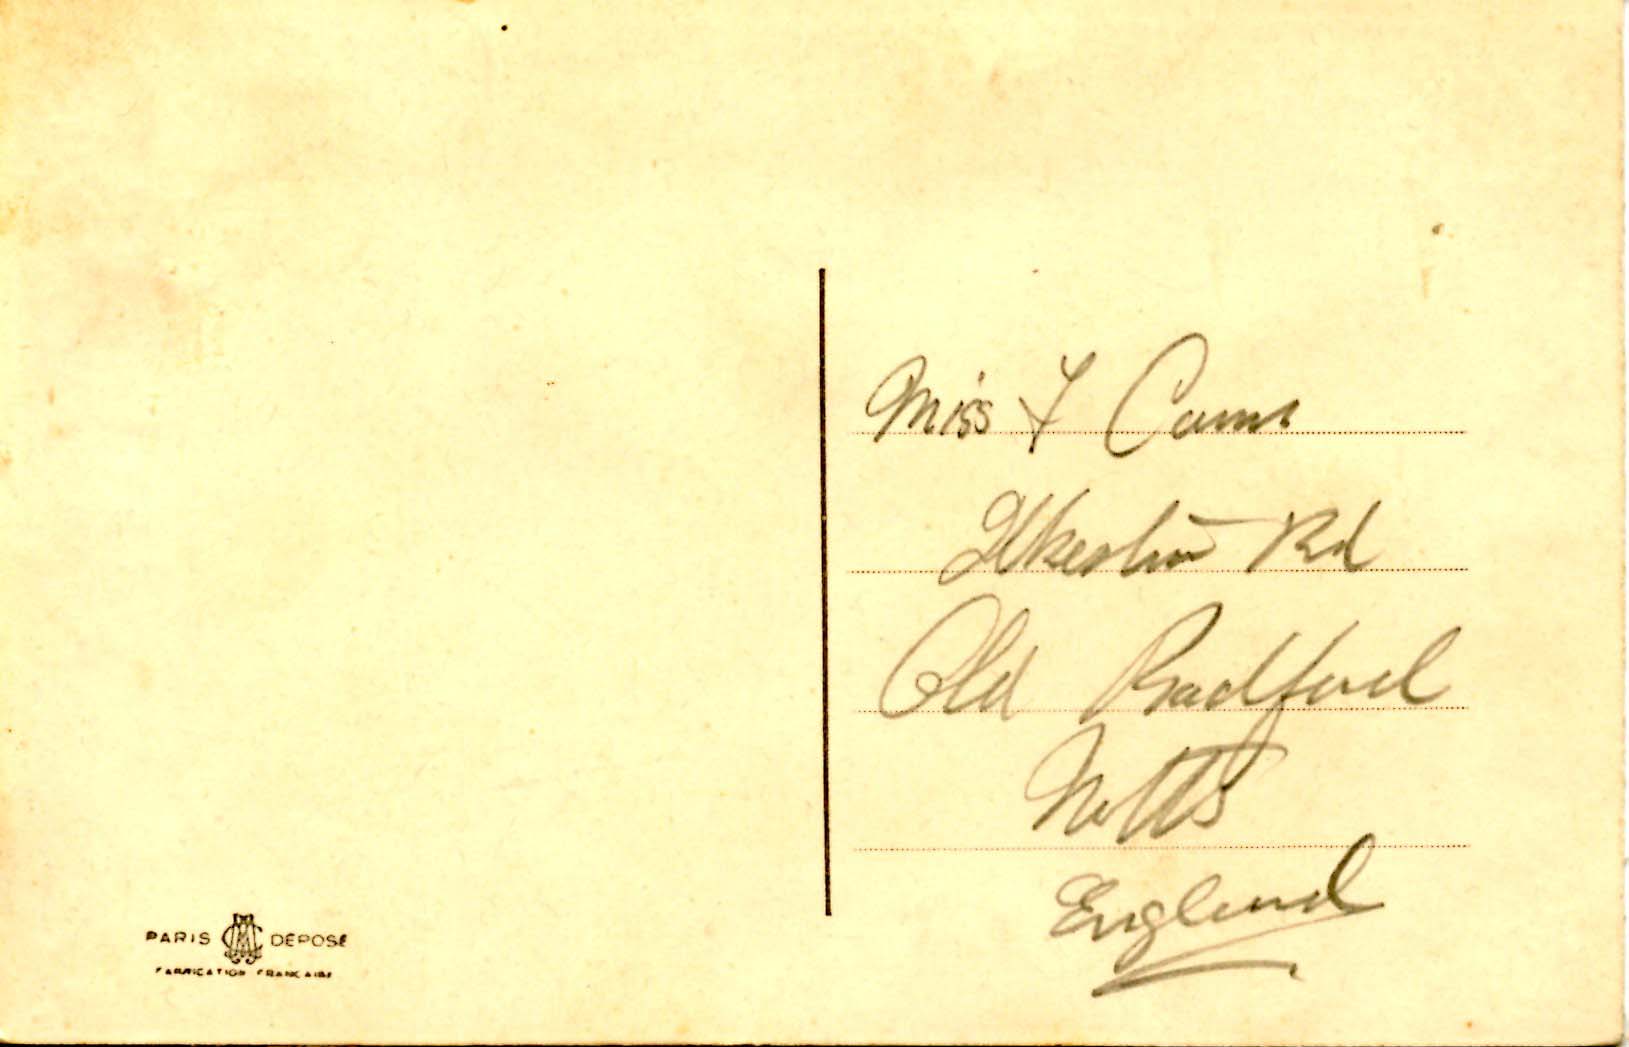 Miss F Cams
Ilkeston Rd
Old Radford
Notts
England
PARIS DEPOSÉ
FABRICATION FRANCAISE